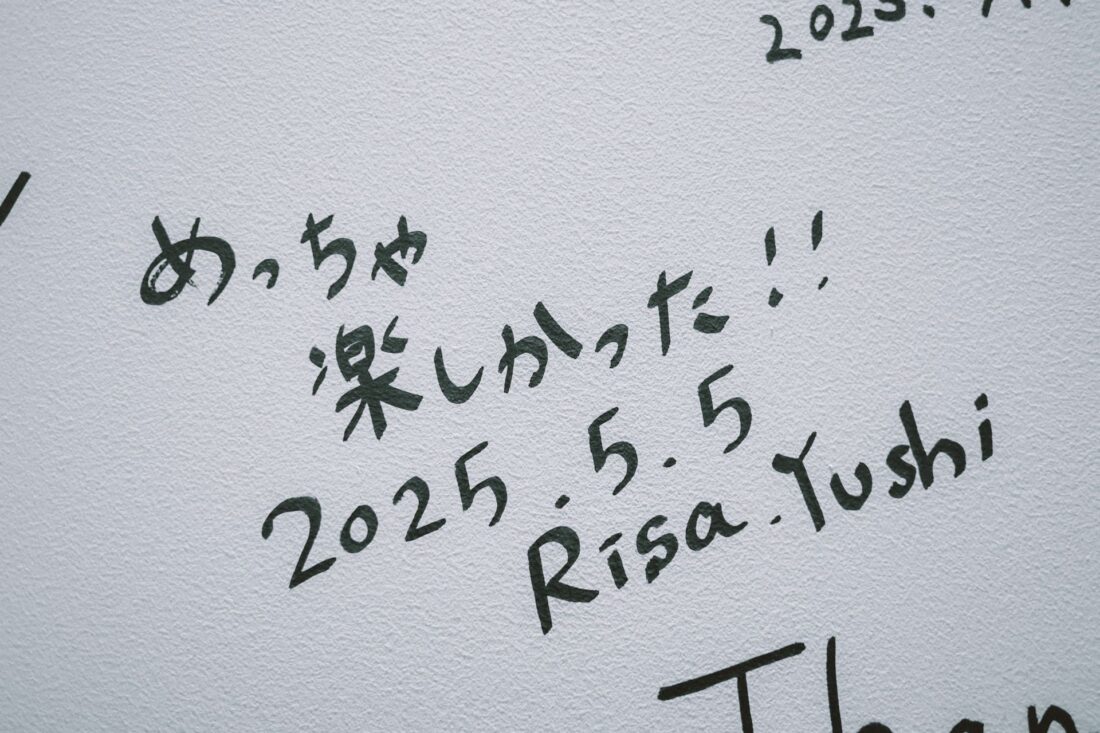 2025.
めっちゃ
楽しかった!!
2025.5.5
Risa.Yushi